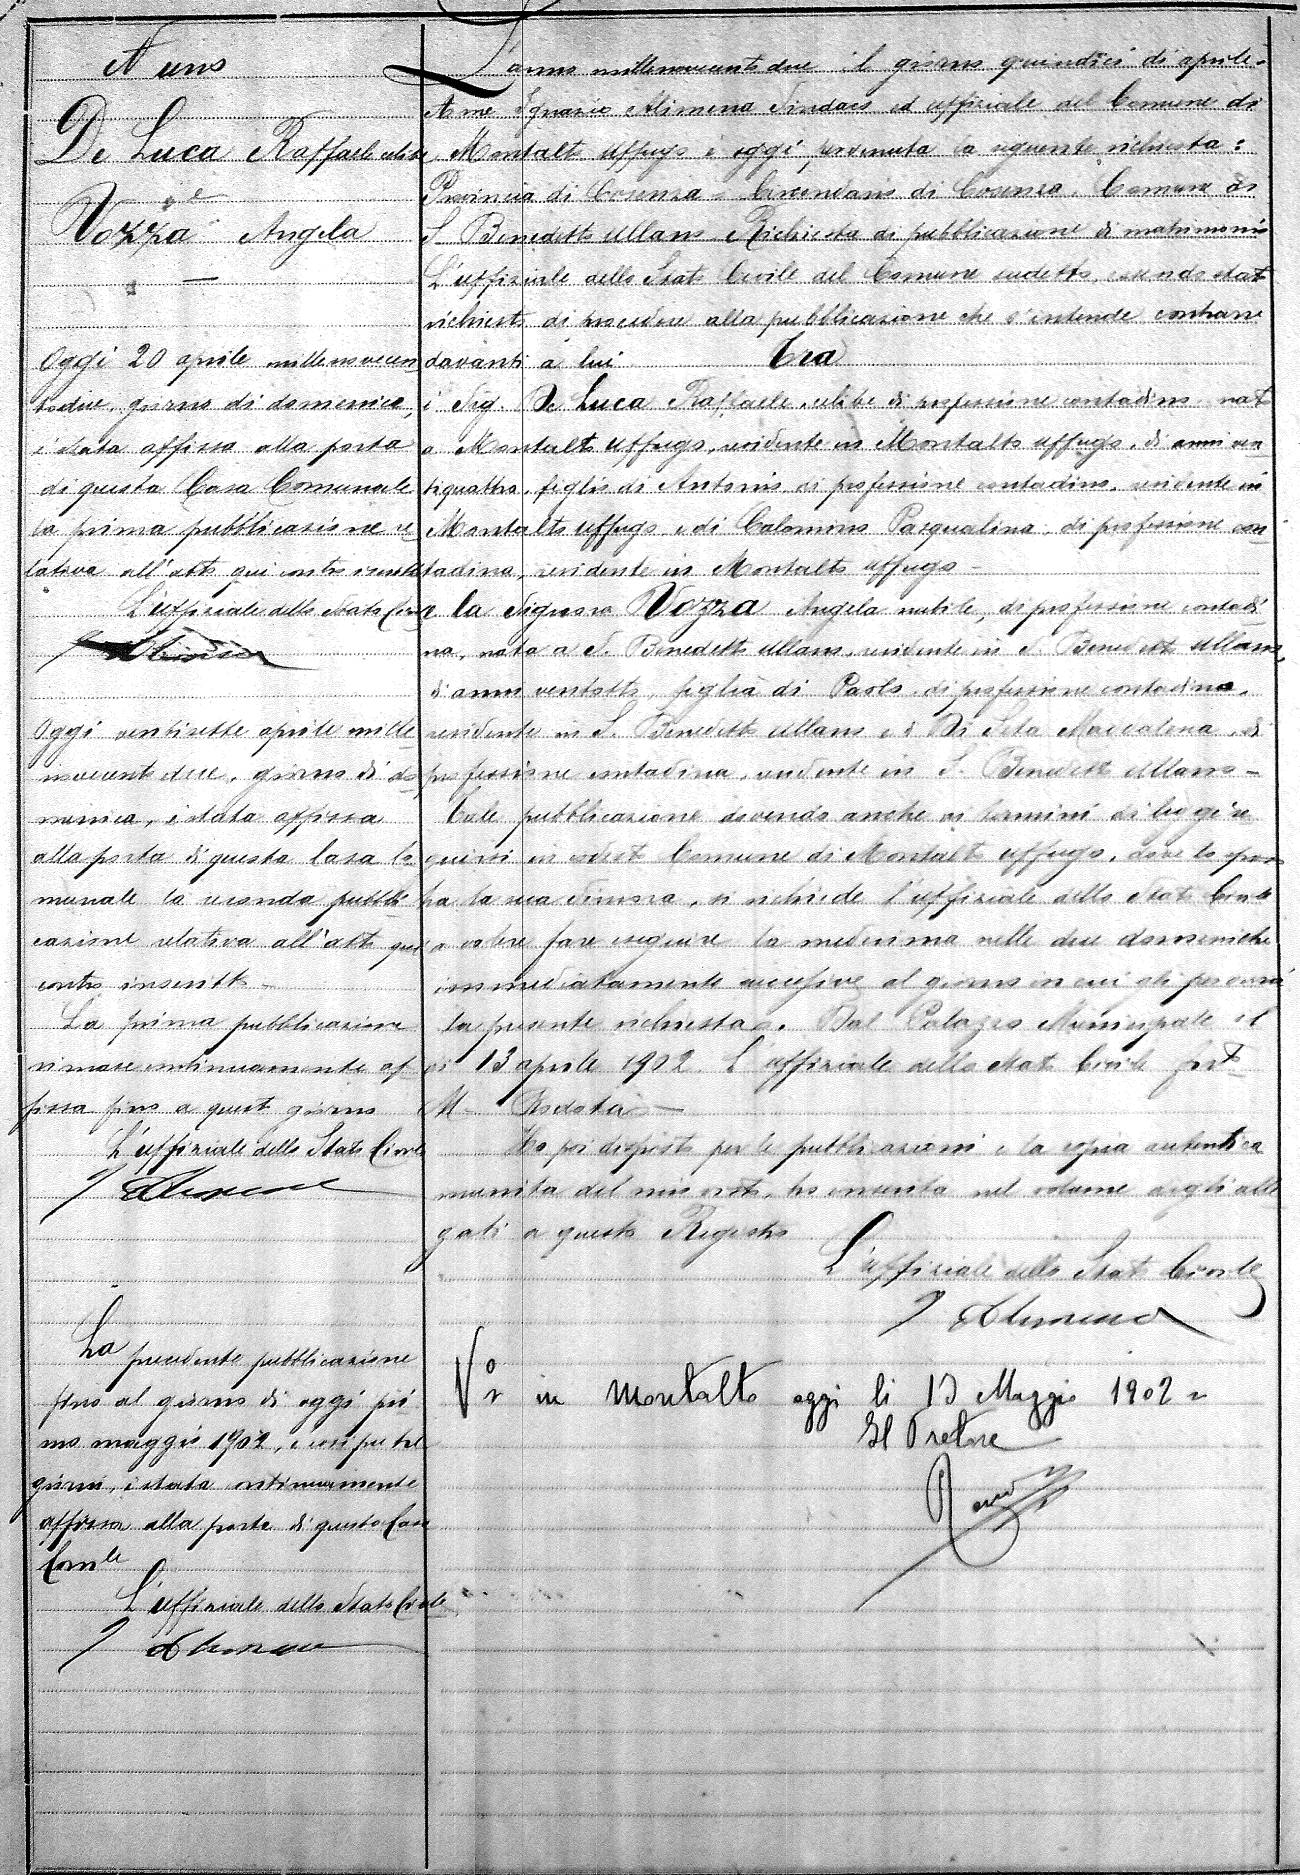 N uno
De Luca Raffaele celibe
e
Vozza Angela
Oggi 20 aprile millenovecen
todue, giorno di domenica,
è stata affissa alla porta
di questa Casa Comunale
la prima pubblicazione re
lativa all'atto qui contro inserito
L'uffiziale dello Stato Civile
I Alimena
Oggi ventisette aprile mille
novecento due, giorno di do
menica, è stata affissa
alla porta di questa Casa Co
munale la seconda pubbli
cazione relativa all'atto qui
contro inserito -
La prima pubblicazione
rimase continuamente af
fissa fino a questo giorno
L'uffiziale dello Stato Civile
I Alimena
La precedente pubblicazione
fino al giorno di oggi pri
mo maggio 1902, e così per tre
giorni, è stata continuamente
affissa alla porta di questa Casa
Comle
L'uffiziale dello Stato Civile
I Alimena
L'anno millenovecento due il giorno quindici di aprile -
A me Ignazio Alimena Sindaco ed uffiziale del Comune di
Montalto Uffugo è oggi pervenuta la seguente richiesta:
Provincia di Cosenza - Circondario di Cosenza. Comune di
S. Benedetto Ullano Richiesta di pubblicazione di matrimonio
L'uffiziale dello Stato Civile del Comune sudetto, essendo stato
richiesto di procedere alla pubblicazione che s'intende contrarre
davanti a lui Tra
i Sig. De Luca Raffaele, celibe di professione contadino nato
a Montalto Uffugo, residente in Montalto Uffugo, di anni ven
tiquattro, figlio di Antonio, di professione contadino, residente in
Montalto Uffugo, e di Calomino Pasqualina, di professione con
tadina, residente in Montalto Uffugo -
e la Signora Vozza Angela nubile, di professione contadi
na, nata a S. Benedetto Ullano, residente in S. Benedetto Ullano,
di anni ventotto, figlia di Paolo di professione contadino,
residente in S. Benedetto Ullano e di Di Seta Maddalena, di
professione contadina, residente in S. Benedetto Ullano -
Tale pubblicazione dovendo anche ai termini di legge se
guirsi in codesto Comune di Montalto Uffugo, dove lo sposo
ha la sua dimora, si richiede l'uffiziale dello Stato Civile
a voler fare eseguire la medesima nelle due domeniche
immediatamente successive al giorno in cui gli perverrà
la presente richiesta. Dal Palazzo Municipale il
dì 13 aprile 1902. L'uffiziale dello Stato Civile fto
M. Rodotà -
Ho poi disposto per le pubblicazioni e la copia autentica
munita del mio visto, ho inserita nel volume degli alle
gati a questo Registro
L'uffiziale dello Stato Civile
I Alimena
Vo in Montalto oggi li 13 Maggio 1902
Il Pretore